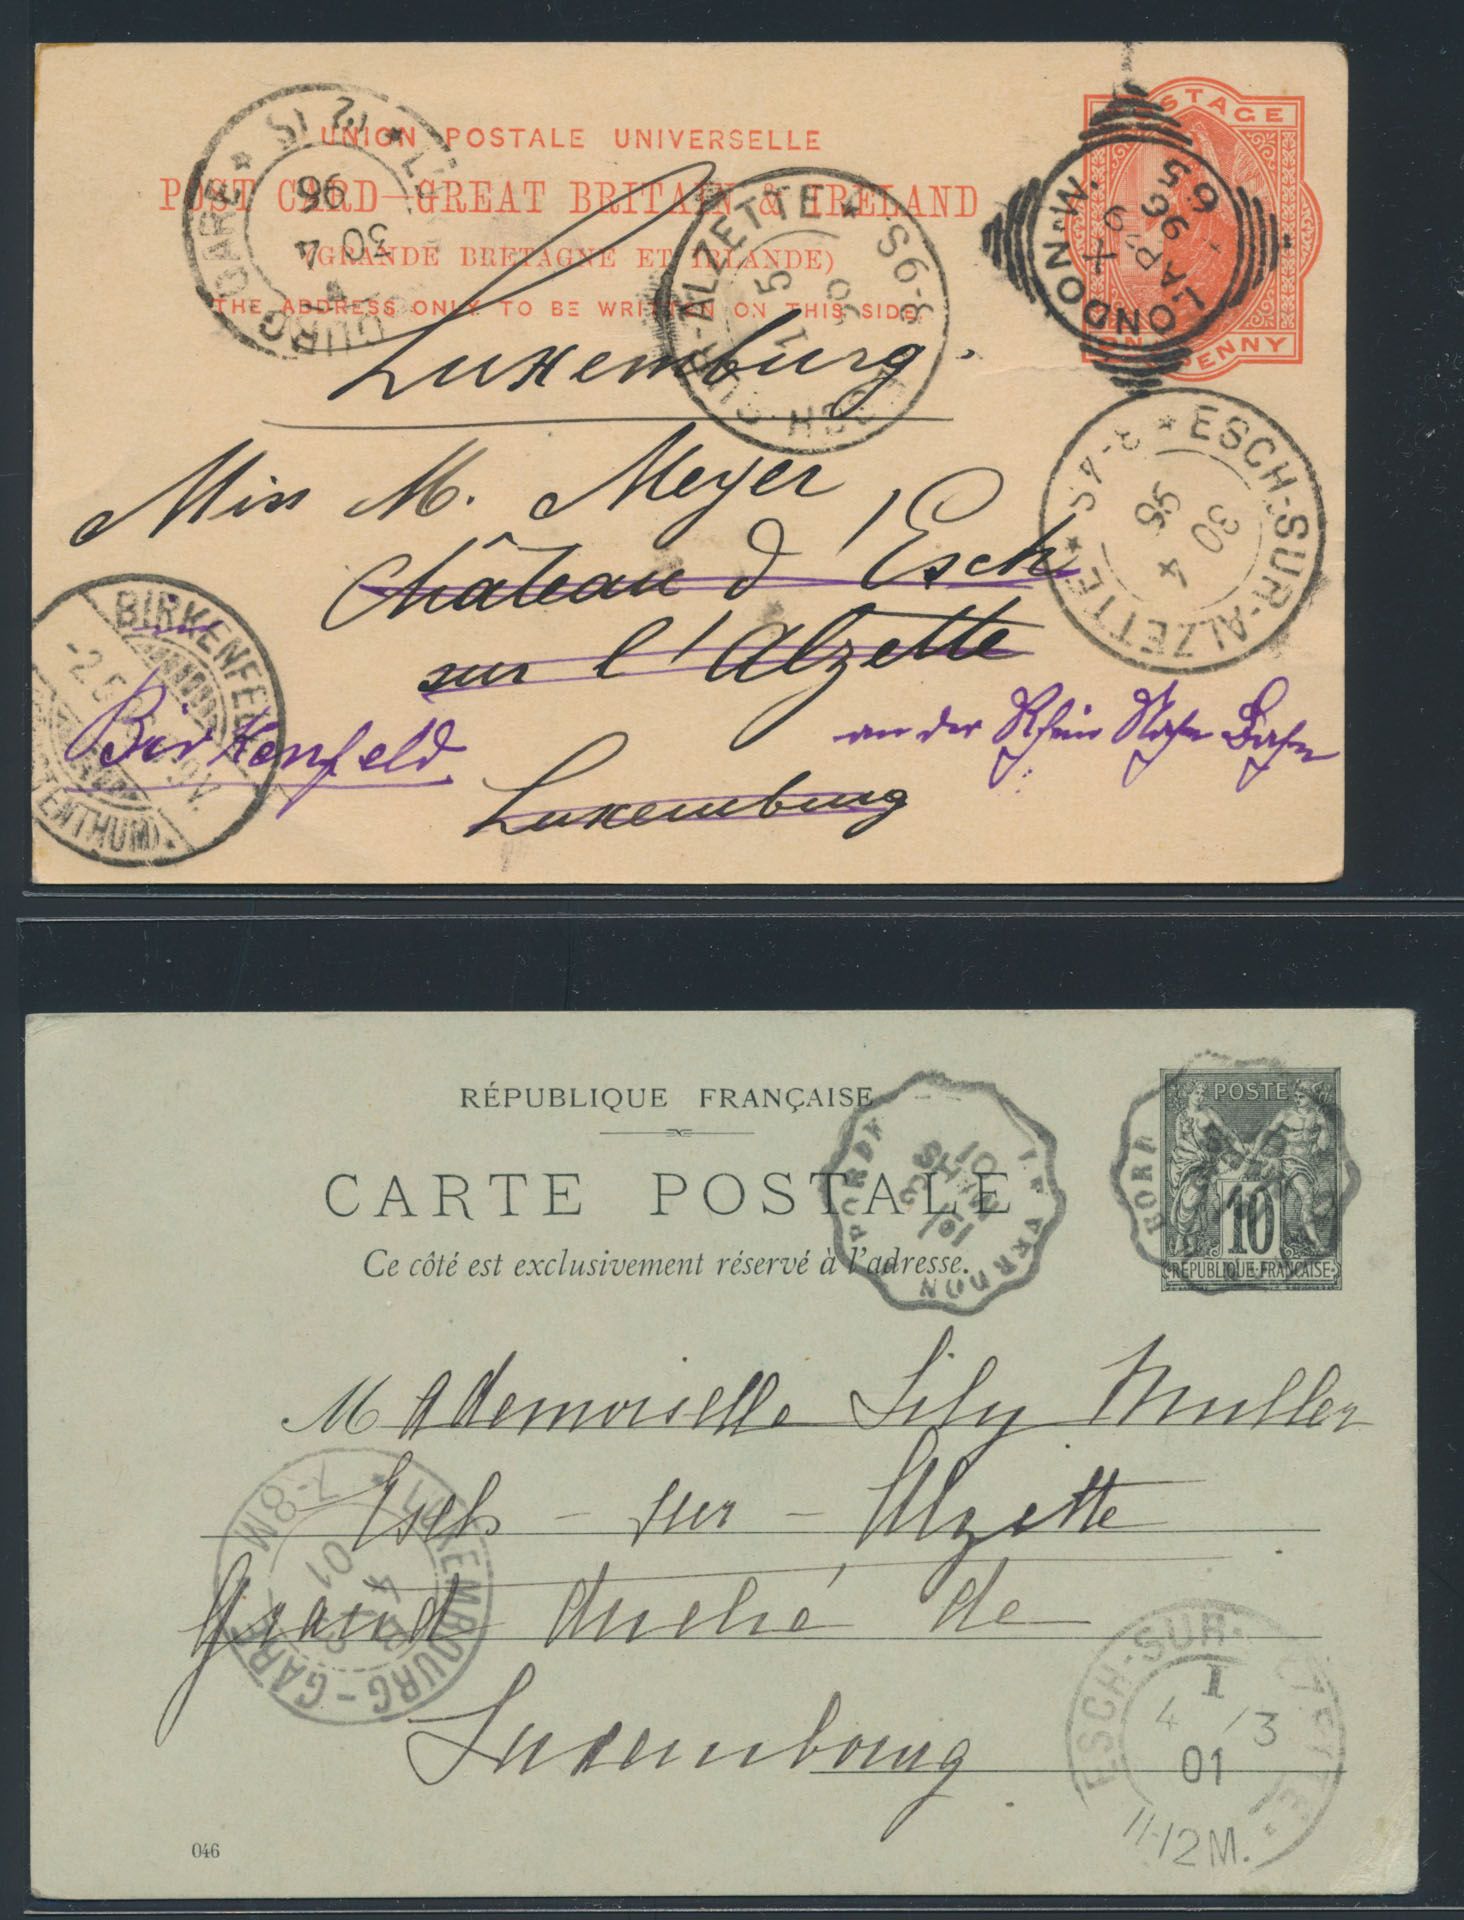 UNION POSTALE UNIVERSELLE
POST CARD—GREAT BRITAIN & IRELAND
(GRANDE BRETAGNE ET IRLANDE)
THE ADDRESS ONLY TO BE WRITTEN ON THIS SIDE.
POSTAGE
ONE PENNY
LONDON·W.
X
6.5
AP 29
96
GARE * 12-1S *
30 4
96
ESCH-SUR-ALZETTE * 8-9S.
1 5
96
ESCH-SUR-ALZETTE * 3-4S *
30 4
96
Luxemburg.
Miss M. Meyer
Château d'Esch
sur l'Alzette
Luxemburg
Birkenfeld
an der Rhein Nahe Bahn
BIRKENFELD
RÉPUBLIQUE FRANÇAISE
CARTE POSTALE
Ce côté est exclusivement réservé à l'adresse.
POSTE
10
RÉPUBLIQUE·FRANÇAISE
VERDON
01
Mademoiselle Lily Muller
Esch - sur - Alzette
Grand Duché de
Luxembourg
LUXEMBOURG-GARE * 7-8M
4 3
01
ESCH-SUR-ALZETTE
I
4 /3
01
11-12M.
046